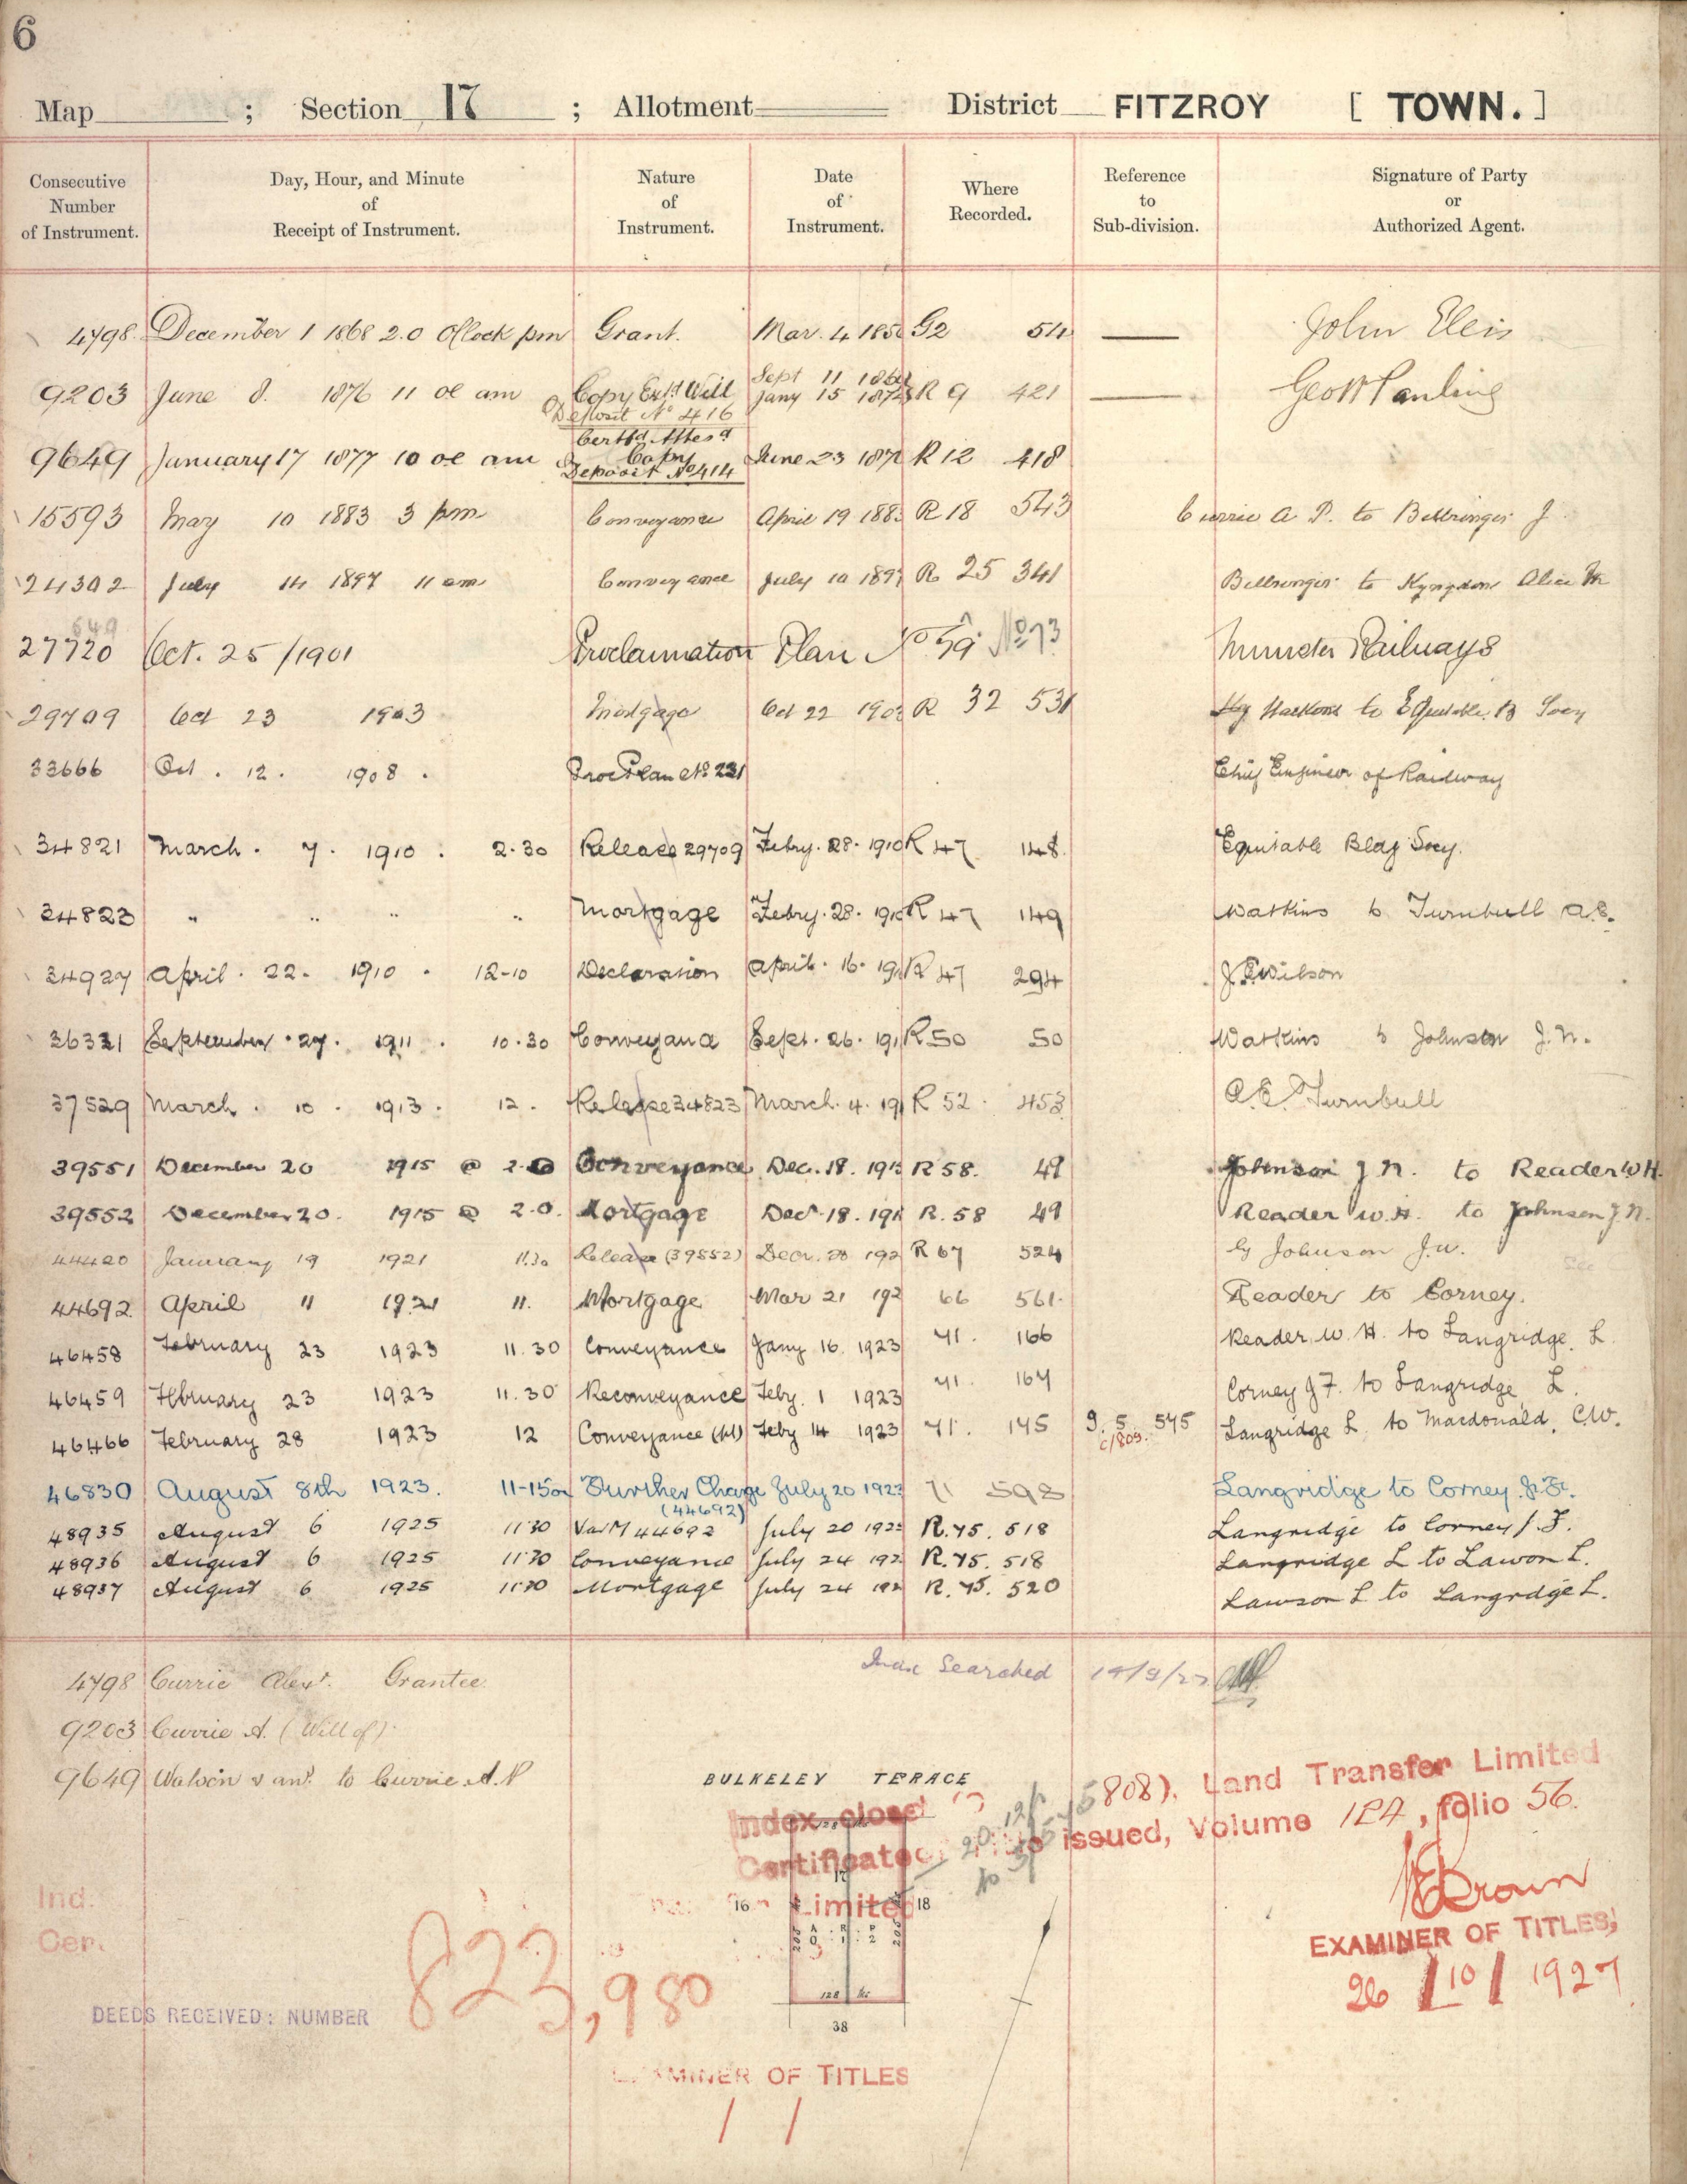 6
Map ; Section 17 ; Allotment District FITZROY [ TOWN. ]
Consecutive Number of Instrument. Day, Hour, and Minute of Receipt of Instrument. Nature of Instrument. Date of Instrument. Where Recorded. Reference to Sub-division. Signature of Party or Authorized Agent.
4798 December 1 1868 2.0 Oclock pm Grant. Mar. 4 185 G2 54 John Ellis
9203 June 8. 1876 11 oc am Copy Extd Will Deposit No 416 Sept 11 186 Jany 15 187 R 9 421
9649 January 17 1877 10 oc am Certfd Attesd Copy Deposit No 414 June 23 187 R 12 418
15593 May 10 1883 3 pm Conveyance April 19 188 R 18 543 Currie A. P. to Bellringer J
24302 July 14 1897 11 am Conveyance July 10 189 R 25 341 Bellringer to Kyngdon Alice M
649
27720 Oct. 25/1901 Proclamation Plan No 59 No 73 Minister Railways
29709 Oct 23 1903 Mortgage Oct 22 190 R 32 531 to Equitable B Socy
33666 Oct. 12. 1908. Proc Plan No 231 Chief Engineer of Railway
34821 March. 7. 1910. 2.30 Release 29709 Febry. 28. 1910 R 47 148. Equitable Bldg Socy.
34823 " " " " Mortgage Febry. 28. 191 R 47 149 Watkins to Turnbull A.E.
34927 April. 22. 1910. 12-10 Declaration April. 16. 19 R 47 294 J. Wilson
36321 September. 27. 1911. 10.30 Conveyance Sept. 26. 191 R 50 50 Watkins to Johnson J. N.
37529 March. 10. 1913. 12. Release 34823 March. 4. 19 R 52. 453 A. E. Turnbull
39551 December 20 1915 @ 2.0 Conveyance Dec. 18. 191 R 58. 49 Johnson J. N. to Reader W H.
39552 December 20. 1915 @ 2.0. Mortgage Decr 18. 191 R. 58 49 Reader W. H. to Johnson J. N.
44420 January 19 1921 11.30 Release (39552) Decr. 20 192 R 67 524 by Johnson J. N.
44692 April 11 1921 11. Mortgage Mar 21 192 66 561. Reader to Corney.
46458 February 23 1923 11.30 Conveyance Jany 16. 1923 71. 166 Reader W. H. to Langridge. L.
46459 February 23 1923 11.30 Reconveyance Feby. 1 1923 71. 167 Corney J F. to Langridge L.
46466 February 28 1923 12 Conveyance (pt) Feby 14 1923 71. 175 9. 5. 575 C/809. Langridge L. to Macdonald. C.W.
46830 August 8th 1923. 11-15am Further Charge (44692) July 20 1923 71 598 Langridge to Corney J. F.
48935 August 6 1925 11.30 Var M 44692 July 20 192 R. 75. 518 Langridge to Corney J. F.
48936 August 6 1925 11.30 Conveyance July 24 192 R. 75. 518 Langridge L to Lawson L.
48937 August 6 1925 11.30 Mortgage July 24 192 R. 75. 520 Lawson L to Langridge L.
Index Searched 19/9/27
4798 Currie Alexr. Grantee
9203 Currie A. (Will of)
9649 Watson & anr. to Currie A. P
BULKELEY TERRACE
808). Land Transfer Limited
Index closed
Certificate of Title issued, Volume 124, folio 56.
Limited
128 lks
17
16 18
A R P
0 : 1 : 2
128 lks
38
Brown
EXAMINER OF TITLES,
26/10/1927
Ind.
Cer.
DEEDS RECEIVED: NUMBER 823,980
EXAMINER OF TITLES
/ /